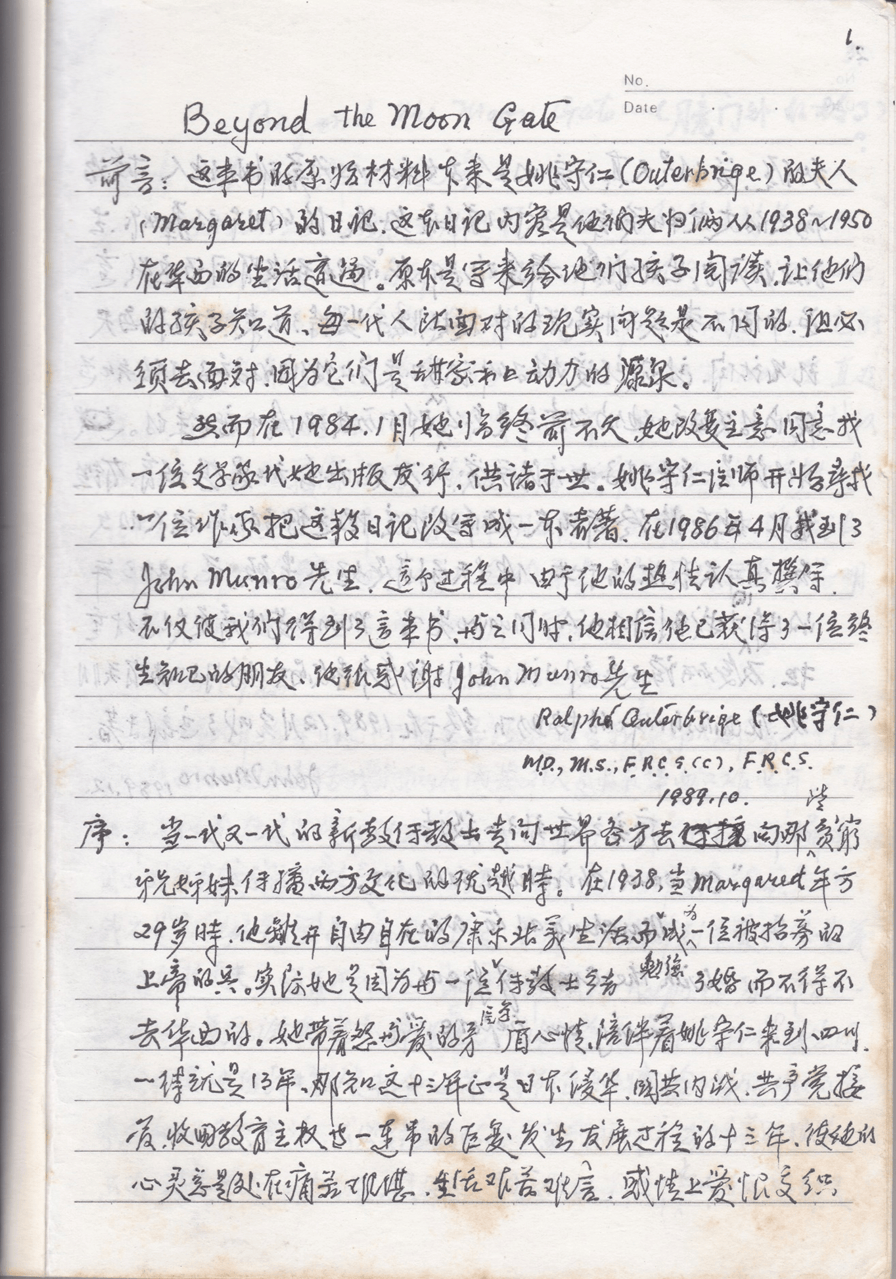 1.
No.
Date
Beyond the Moon Gate
前言：这本书的原始材料本来是姚守仁(Outerbrige)的夫人
(Margaret)的日记.这本日记内容是他们夫妇俩从1938~1950
在华西的生活遭遇。原本是写来给他们孩子阅读.让他们
的孩子知道、每一代人所面对的现实问题是不同的.但必
须去面对.因为它们是甜蜜和上动力的源泉。
然而在1984.1月她临终前不久.她改变主意同意找
一位文学家代她出版发行.供诸于世。姚守仁医师开始寻找
一位作家把这教日记改写成一本者著、在1986年4月找到了
John Munro先生.这个过程中由于他的热情认真撰写.
不仅使我们得到了这本书.与之同时.他相信他已获得了一位终
生知己的朋友、他视感谢John Munro先生
Ralphe Outerbrige(姚守仁)
M.D., M.S., F.R.C.S(C), F.R.C.S.
1989.10.
序：当一代又一代的新教传教士走向世界各方去向那些贫穷
兄姊妹传播西方文化的优越时。在1938,当Margaret年方
29岁时.他离开自由自在的康乐北美生活而成为一位被招募的
上帝的兵。实际她是因为与一位传教士勉强了婚而不得不
去华西的。她带着怒与爱的矛盾心情.陪伴着姚守仁来到四川.
一待就是13年、那知这十三年正是日本侵华.国共内战.共产党接
管.收回教育主权等一连串的巨变发生发展过程的十三年.使他的
心灵总是处在痛苦不堪.生活艰苦难言.感情上爱恨交织